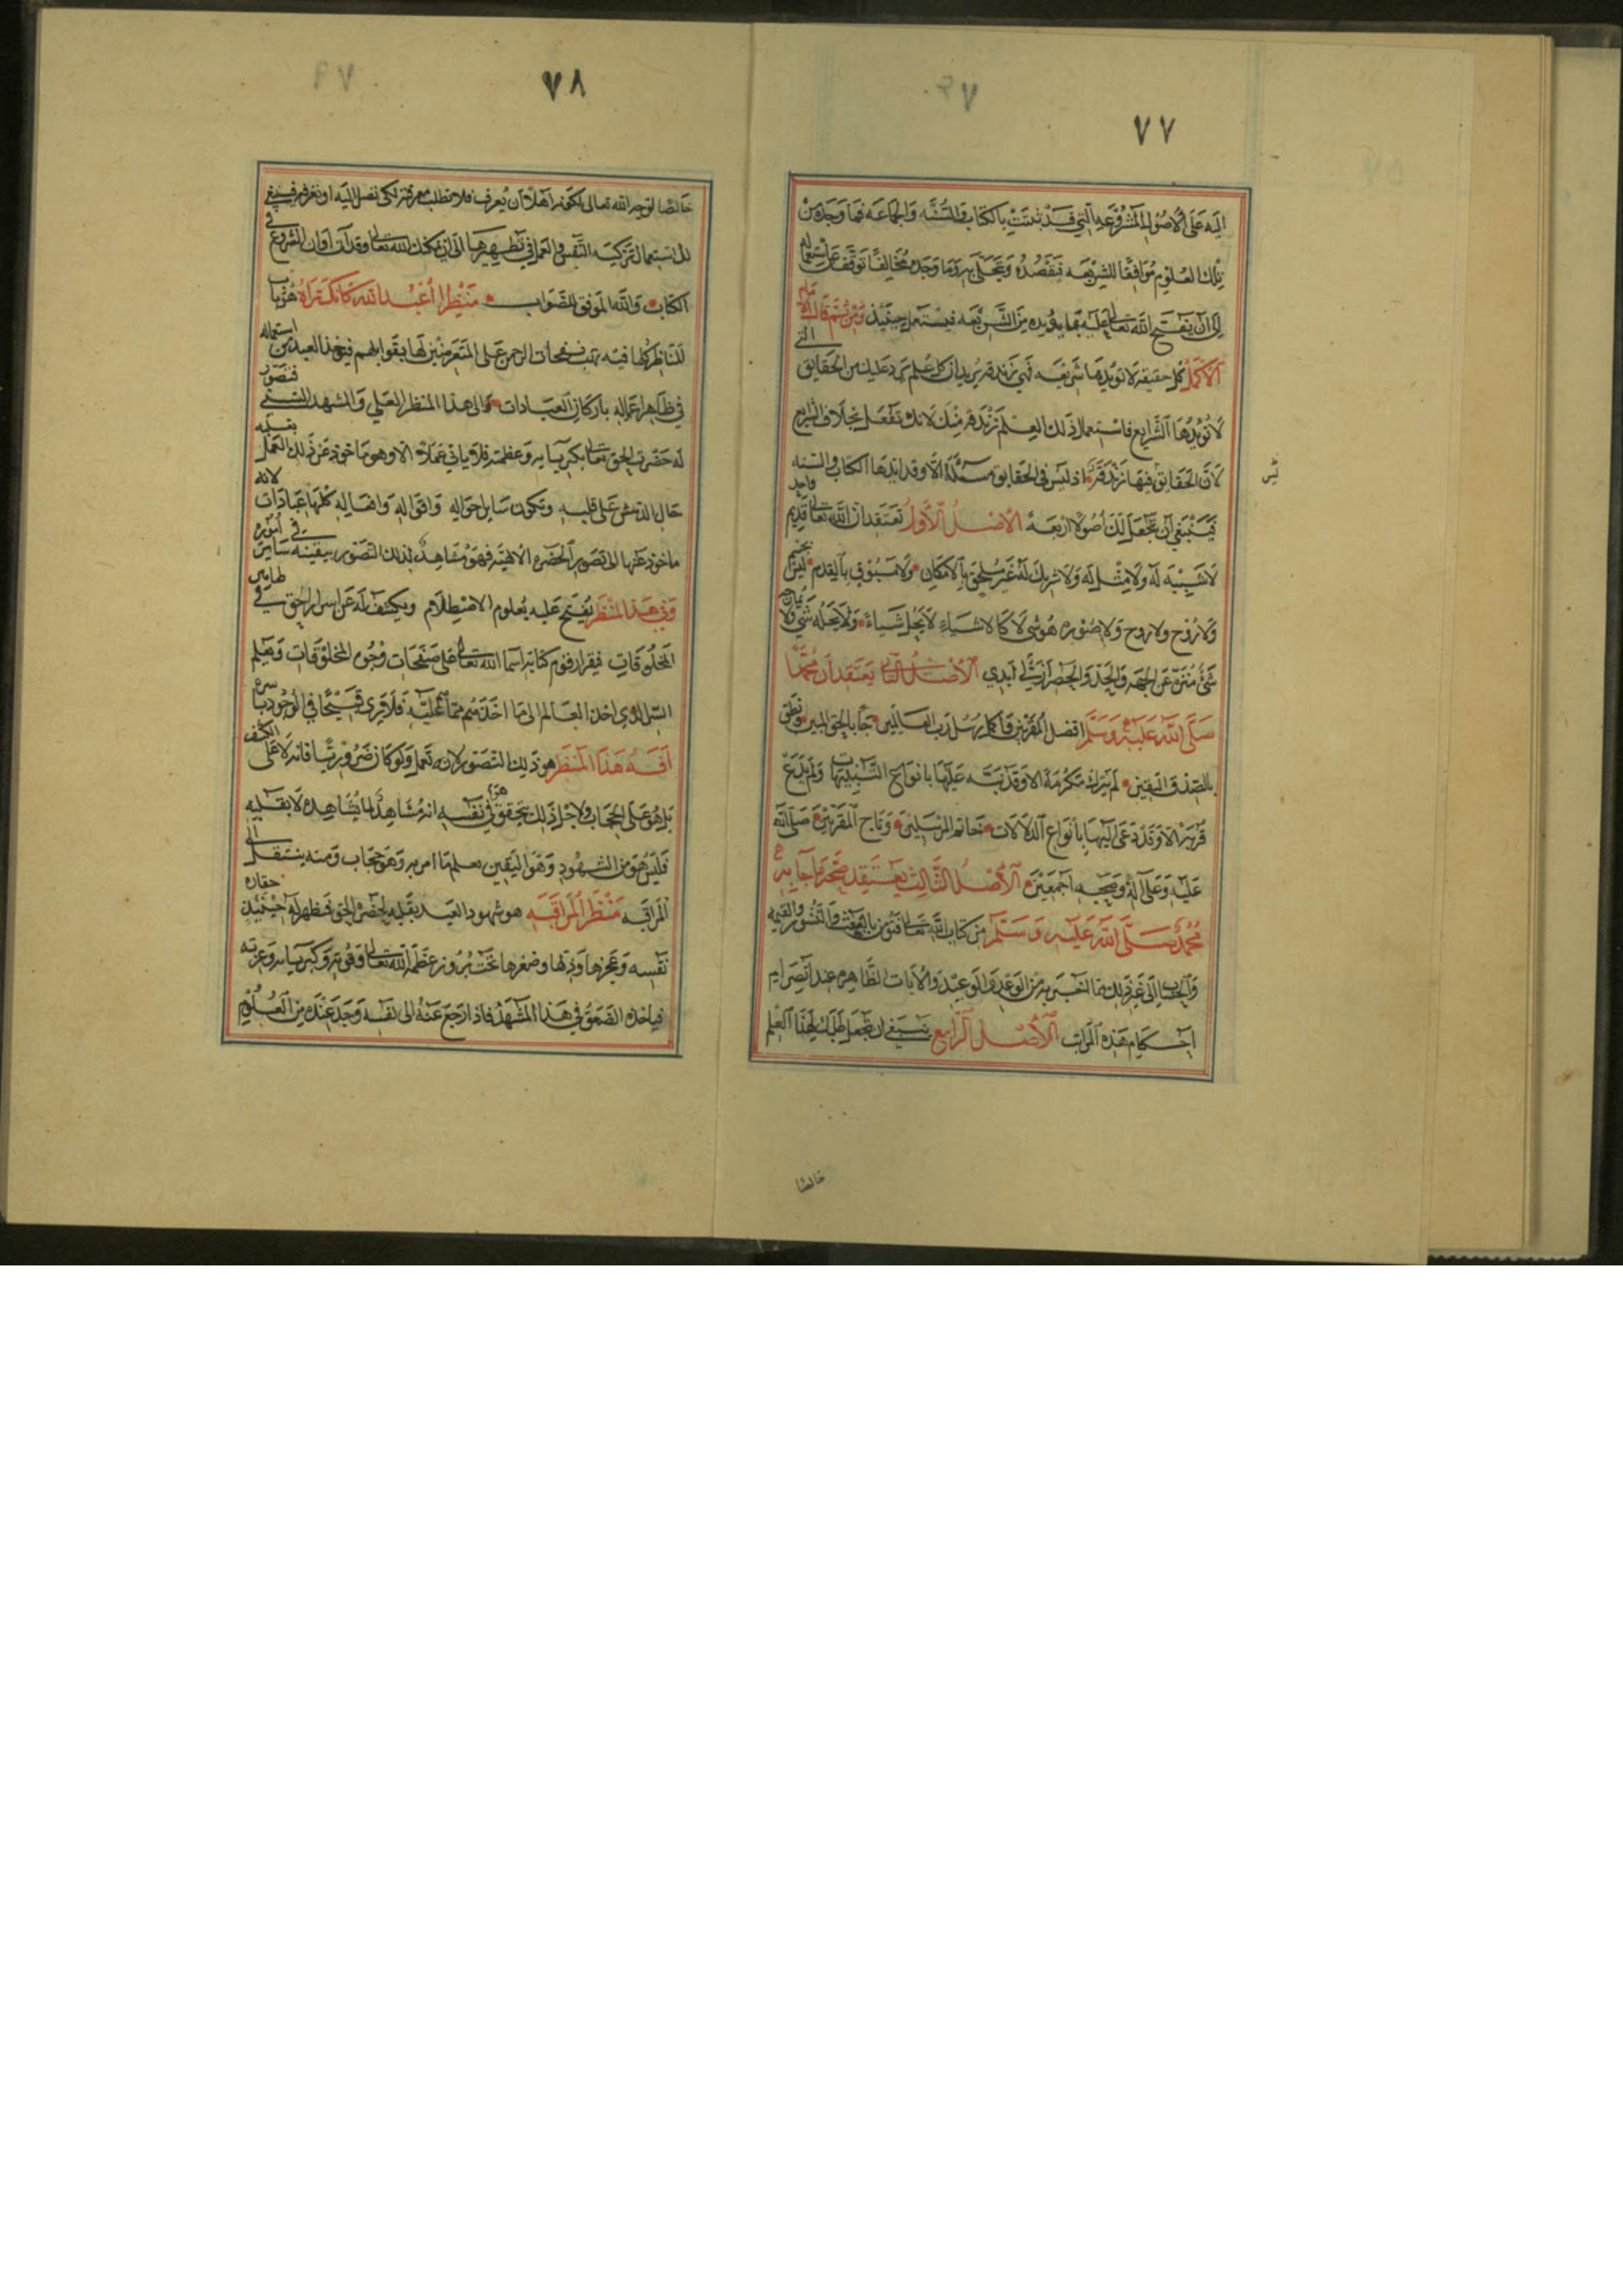 ٧٧
اليه على الاصول المشروعه التي قد ثبتت بالكتاب والسنه والجماعه فما وجده من
تلك العلوم موافقا للشريعه فيقصده ويتحلى به وما وجده مخالفا توقف عن استعماله
الى ان يفتح الله تعالى عليه بما يؤيده من الشريعه فيستعمله حينئذ ومن ثم قال الامام
الاكمل كل حقيقه لا تؤيدها شريعه فهي زندقه يريد ان كل علم يرد عليك من الحقايق التي
لا تؤيدها الشرايع فاستعمال ذلك العلم زندقه منك لانك تفعل بخلاف الشرايع
لان الحقايق فيها زندقه اذ ليس في الحقايق مسئلة الا وقد ايدها الكتاب والسنه
ليس
فينبغي ان تجعل لك اصولا اربعه الاصل الاول تعتقد ان الله تعالى واحد قديم
لا شبيه له ولا مثل له ولا شريك له غير ملحق بالامكان ولا مسبوق بالقدم ليس بجسم
ولا روح ولا روح ولا صوره هو شى لا كالاشياء لا يحل شياء ولا يحله شي ولا يمازجه
شئ منزه عن الجهه والحد والحصر ازلي ابدي الاصل الثاني يعتقد ان محمدا
صلى الله عليه وسلم افضل المقربين واكمل رسل رب العالمين جا بالحق المبين ونطق
بالصدق اليقين لم يترك مكرمة الا وقد نبه عليها بانواع التنبيهات ولم يدع
قربة الا وقد دعى اليها بانواع الدلالات خاتم المرسلين وتاج المقربين صلى الله
عليه وعلى آله وصحبه اجمعين الاصل الثالث يعتقد صحة ما جا به
محمد صلى الله عليه وسلم من كتاب الله تعالى فتؤمن بالبعث والنشور والقيمه
والحساب الى غير ذلك مما اخبر به من الوعد والوعيد والايات الظاهره عند انصرام
احكام هذه المراتب الاصل الرابع ينبغي ان تجعل طلبك لهذا العلم
خالصا
٧٨
خالصا لوجه الله تعالى لكونه اهلا ان يعرف فلا تطلب معرفته لكى تصل اليه او تعرفه فينبغي
لك استعمال تزكيه النفس والعمل في تطهيرها الى ان يمكنك الله تعالى وقد آن اوان الشروع في
الكتاب والله الموفق للصواب منظر اعبد الله كانك تراه هذا باب
للمناظر كلها فيه تهب نفحات الرحمن على المتعرضين لها بقوابلهم فيخذ العبد من استعماله
في ظاهر اعماله باركان العبادات الى هذا المنظر العلي والمشهد السني فتصور
له حضرة الحق تعالى بكبريايه وعظمته فلا ياتي عملا الا وهو ماخوذ عن ذلك العمل بقلبه
حال الدهش على قلبه وتكون ساير احواله واقواله وافعاله كلها عبادات لانه
ماخوذ عنها الى تصور الحضره الالهيه فهو مشاهد لذلك التصور بيقينه ساير في اموره
وفي هذا المنظر يفتح عليه بعلوم الاصطلام ويكشف له عن اسرار الحق في ظاهر
المخلوقات فيقرا رقوم كتابه اسما الله تعالى على صفحات وجوه المخلوقات ويعلم
السر الذي اخذ العالم الى ما اخذ منهم مما عليه فلا يرى قبيحا في الوجود باسره
آفة هذا المنظر هو ذلك التصور لانه تعمل ولو كان ضروريا فانه لا على الكشف
بل هو على الحجاب ولاجل ذلك يتحقق في نفسه انه مشاهد لما يشاهده لا بقلبه هذا
فليس هو من الشهود وهو اليقين بعلم ما امر به وهو حجاب ومنه ينتقل الى
المراقبه منظر المراقبه هو شهود العبد بقلبه لحضرة الحق فيظهر له حينئذ حقاره
نفسه وعجزها وذلها وصغرها تحت بروز عظمة الله تعالى وقوته وكبريايه وعزته
فياخذه الصعق في هذا المشهد فاذا رجع عنه الى نفسه وجد عنده من العلوم